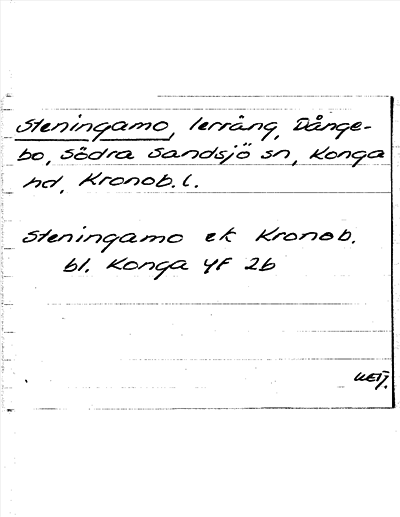 Steningamo, lerräng, Dånge-
bo, Södra Sandsjö sn, Konga
hd, Kronob. l.
Steningamo ek Kronob.
bl. Konga 4F 2b